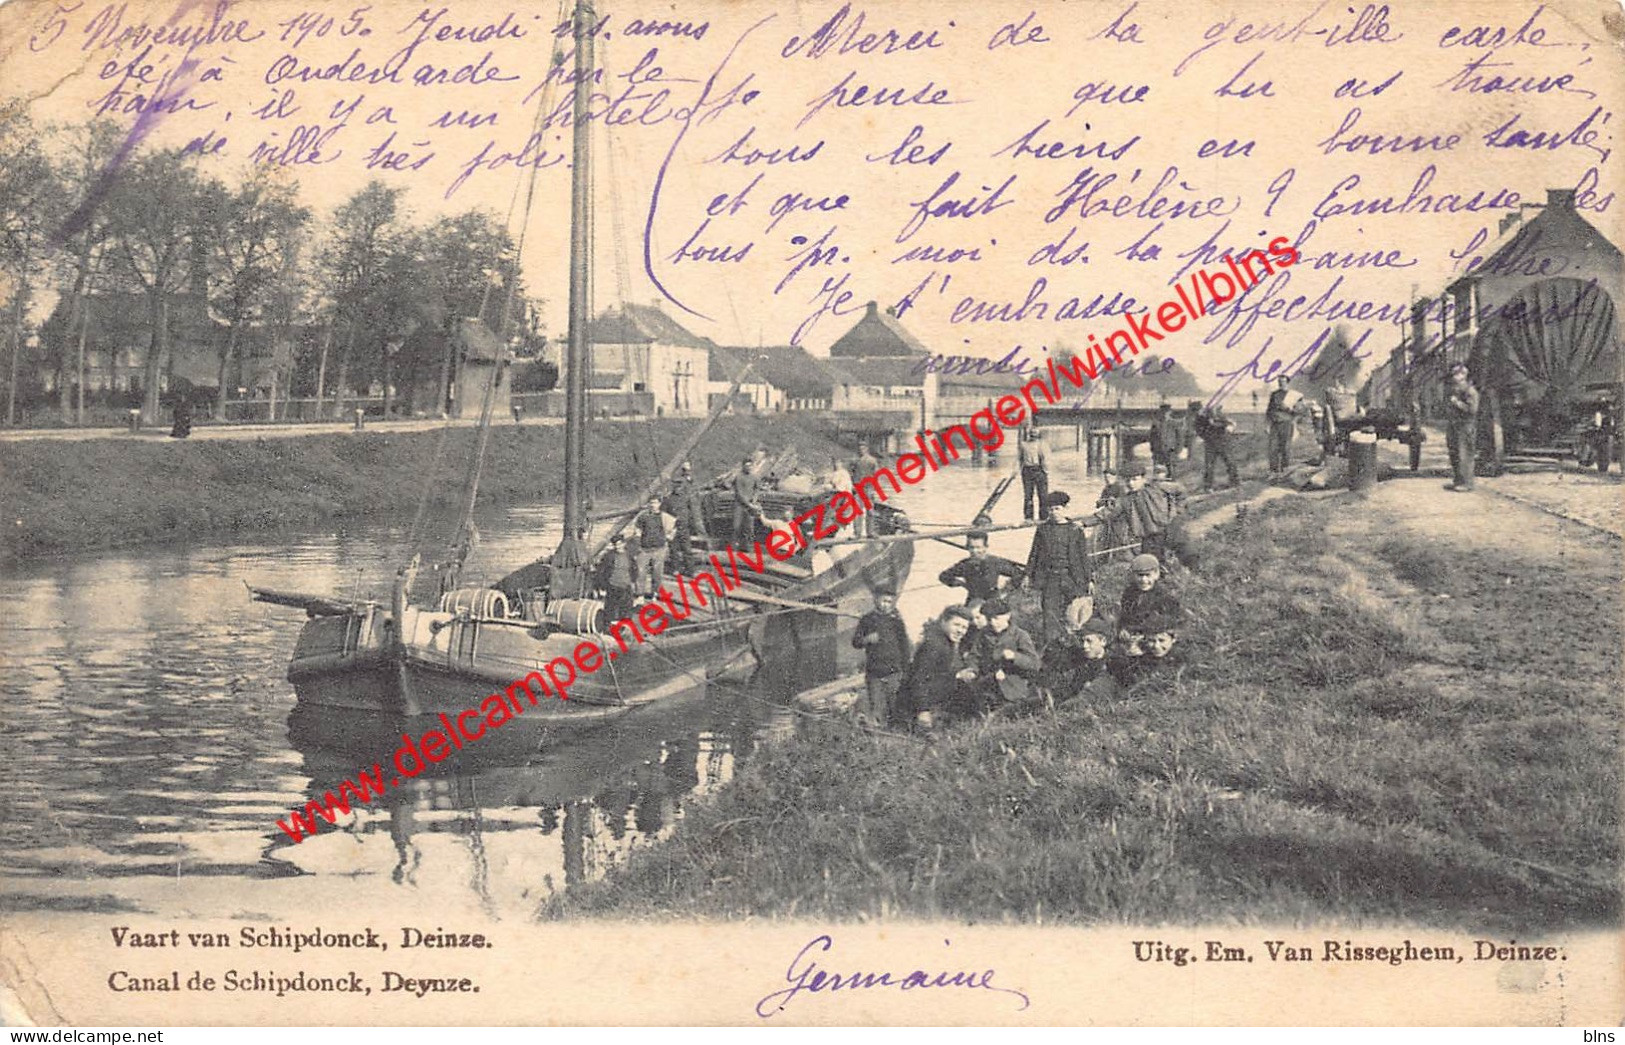 5 Novembre 1905. Jeudi ns. avons
été à Oudenarde par le
train, il y a un hôtel
de ville très joli.
Merci de ta gentille carte,
Je pense que tu as trouvé
tous les tiens en bonne santé,
et que fait Hélène ? Embrasse les
tous pr. moi ds. ta prochaine lettre.
Je t'embrasse affectueusement
ainsi que petit
Germaine
Vaart van Schipdonck, Deinze.
Canal de Schipdonck, Deynze.
Uitg. Em. Van Risseghem, Deinze.
www.delcampe.net/nl/verzamelingen/winkel/blns
blns